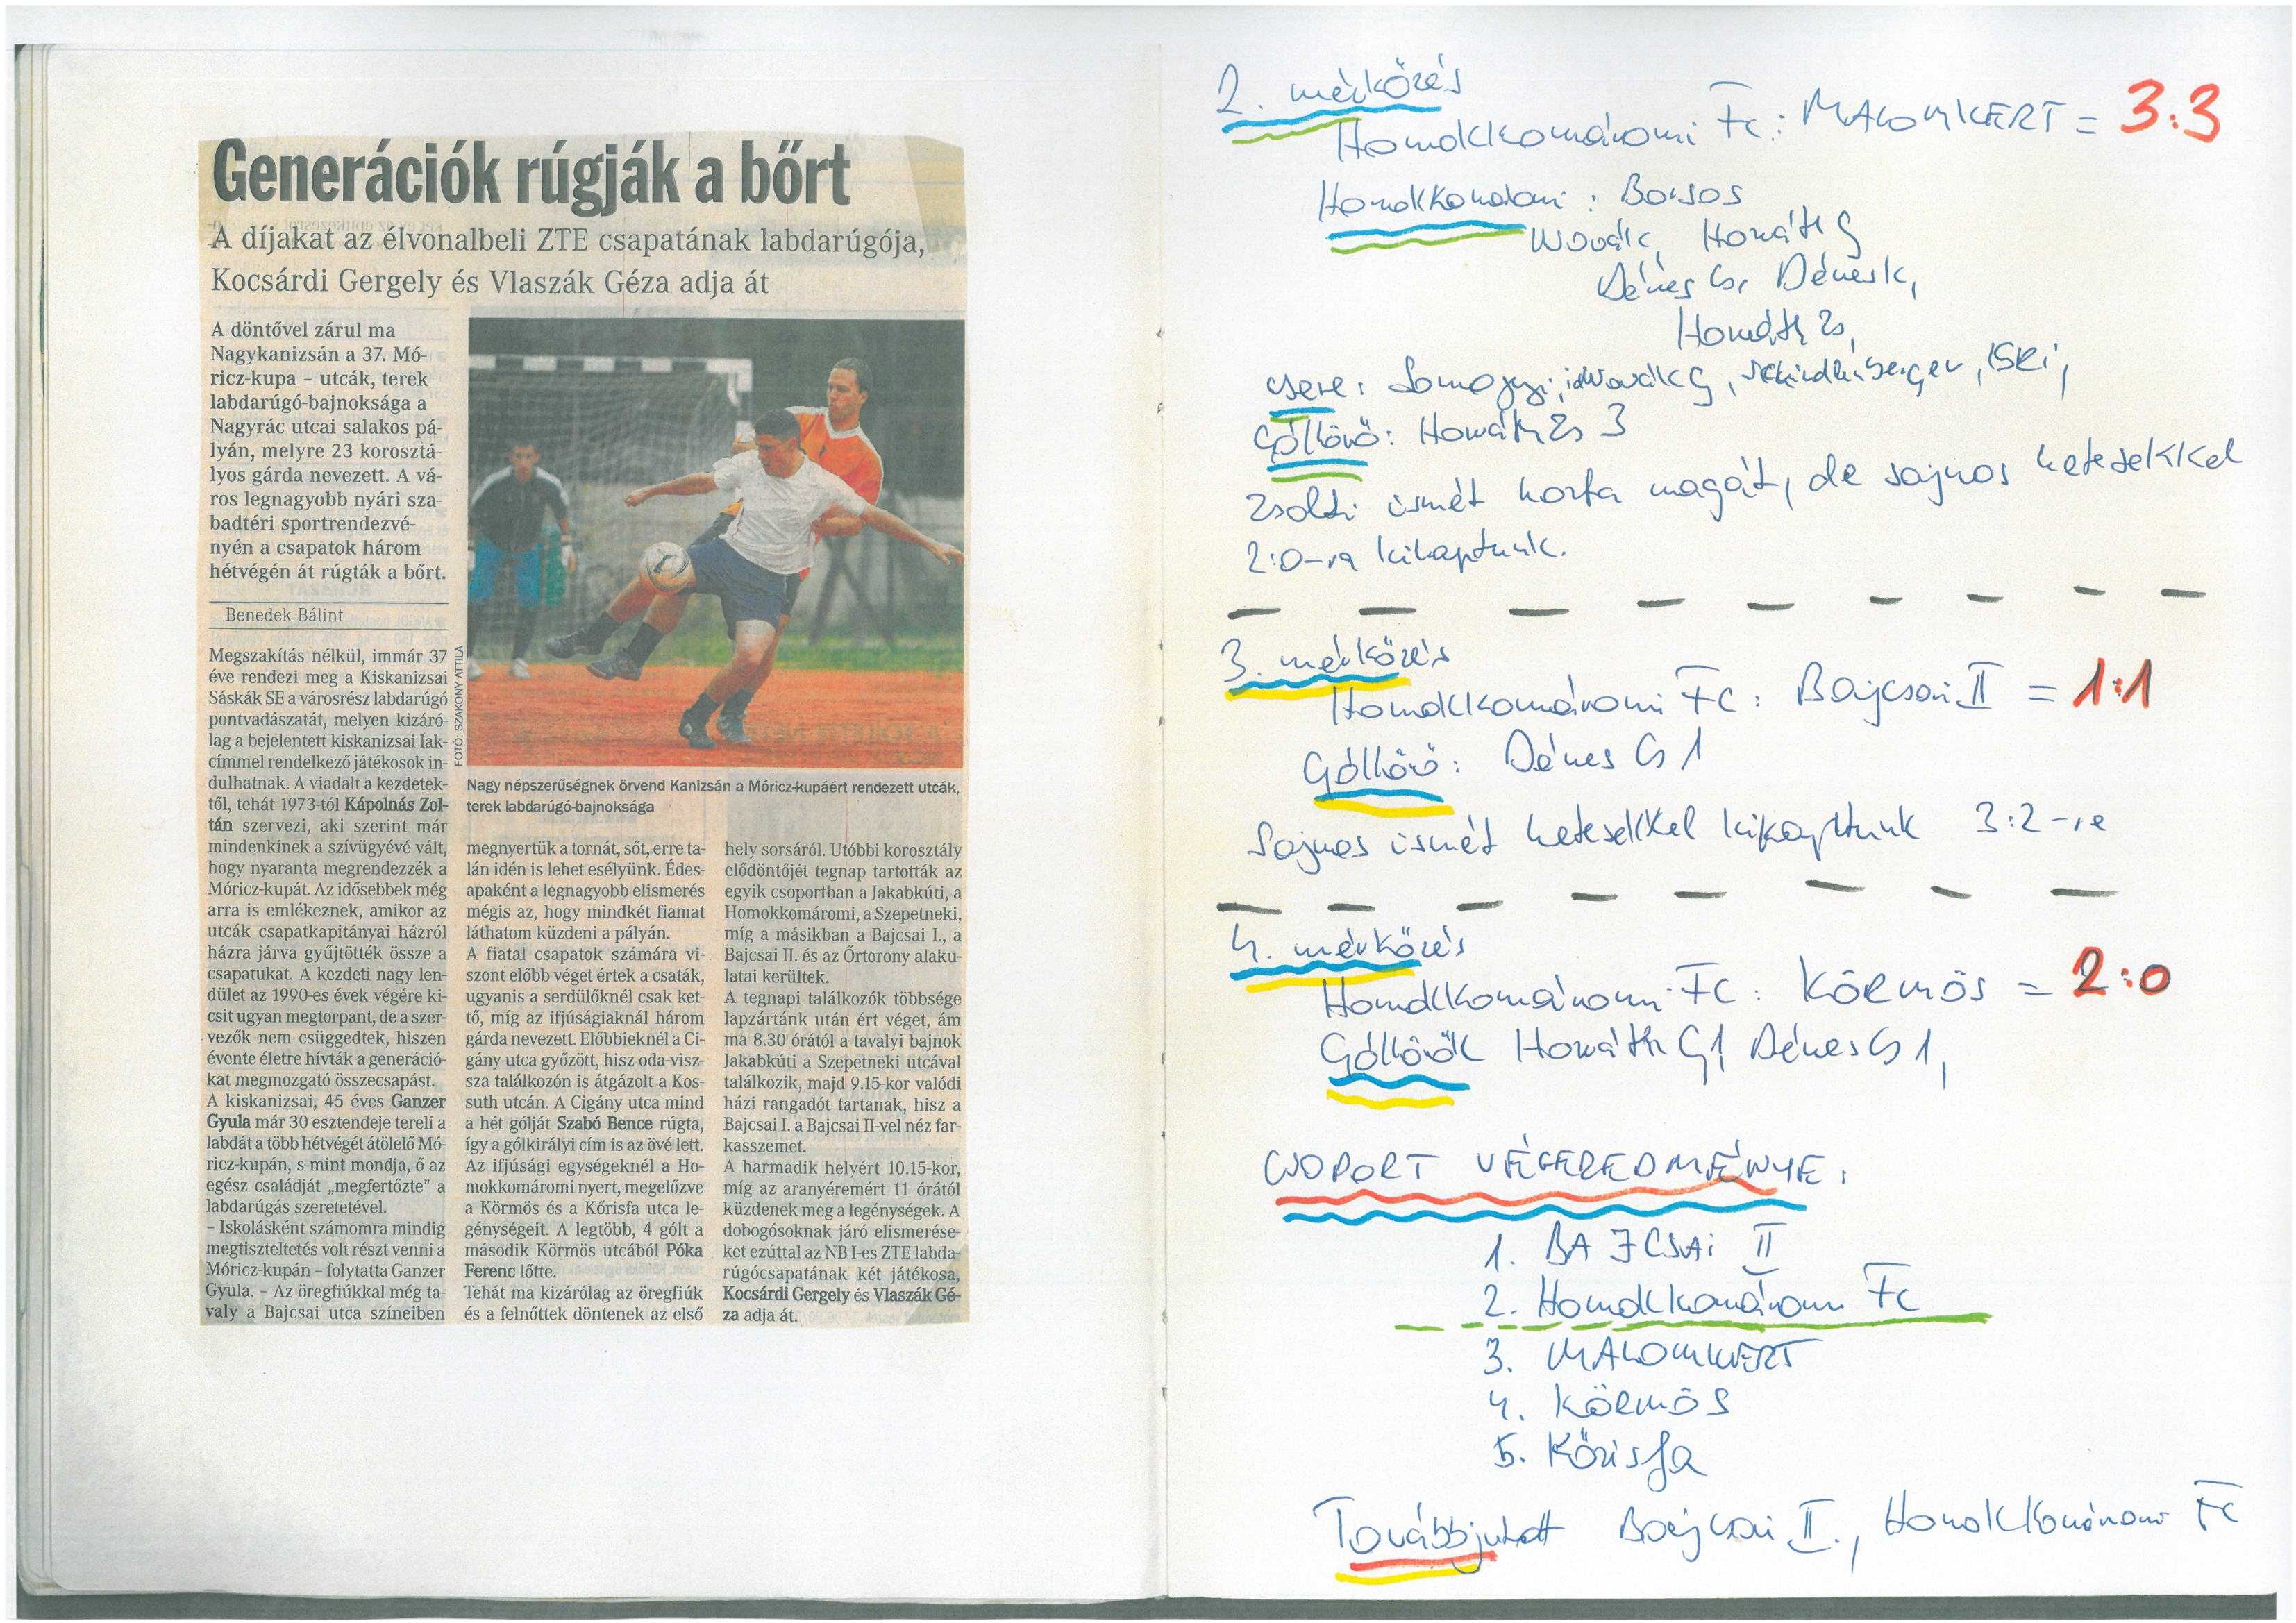 Generációk rúgják a bőrt
A díjakat az élvonalbeli ZTE csapatának labdarúgója,
Kocsárdi Gergely és Vlaszák Géza adja át
A döntővel zárul ma
Nagykanizsán a 37. Mó-
ricz-kupa – utcák, terek
labdarúgó-bajnoksága a
Nagyrác utcai salakos pá-
lyán, melyre 23 korosztá-
lyos gárda nevezett. A vá-
ros legnagyobb nyári sza-
badtéri sportrendezvé-
nyén a csapatok három
hétvégén át rúgták a bőrt.
Benedek Bálint
Megszakítás nélkül, immár 37
éve rendezi meg a Kiskanizsai
Sáskák SE a városrész labdarúgó
pontvadászatát, melyen kizáró-
lag a bejelentett kiskanizsai lak-
címmel rendelkező játékosok in-
dulhatnak. A viadalt a kezdetek-
től, tehát 1973-tól Kápolnás Zol-
tán szervezi, aki szerint már
mindenkinek a szívügyévé vált,
hogy nyaranta megrendezzék a
Móricz-kupát. Az idősebbek még
arra is emlékeznek, amikor az
utcák csapatkapitányai házról
házra járva gyűjtötték össze a
csapatukat. A kezdeti nagy len-
dület az 1990-es évek végére ki-
csit ugyan megtorpant, de a szer-
vezők nem csüggedtek, hiszen
évente életre hívták a generáció-
kat megmozgató összecsapást.
A kiskanizsai, 45 éves Ganzer
Gyula már 30 esztendeje tereli a
labdát a több hétvégét átölelő Mó-
ricz-kupán, s mint mondja, ő az
egész családját „megfertőzte” a
labdarúgás szeretetével.
– Iskolásként számomra mindig
megtiszteltetés volt részt venni a
Móricz-kupán – folytatta Ganzer
Gyula. – Az öregfiúkkal még ta-
valy a Bajcsai utca színeiben
FOTÓ: SZAKONY ATTILA
Nagy népszerűségnek örvend Kanizsán a Móricz-kupáért rendezett utcák,
terek labdarúgó-bajnoksága
megnyertük a tornát, sőt, erre ta-
lán idén is lehet esélyünk. Édes-
apaként a legnagyobb elismerés
mégis az, hogy mindkét fiamat
láthatom küzdeni a pályán.
A fiatal csapatok számára vi-
szont előbb véget értek a csaták,
ugyanis a serdülőknél csak ket-
tő, míg az ifjúságiaknál három
gárda nevezett. Előbbieknél a Ci-
gány utca győzött, hisz oda-visz-
sza találkozón is átgázolt a Kos-
suth utcán. A Cigány utca mind
a hét gólját Szabó Bence rúgta,
így a gólkirályi cím is az övé lett.
Az ifjúsági egységeknél a Ho-
mokkomáromi nyert, megelőzve
a Körmös és a Kőrisfa utca le-
génységeit. A legtöbb, 4 gólt a
második Körmös utcából Póka
Ferenc lőtte.
Tehát ma kizárólag az öregfiúk
és a felnőttek döntenek az első
hely sorsáról. Utóbbi korosztály
elődöntőjét tegnap tartották az
egyik csoportban a Jakabkúti, a
Homokkomáromi, a Szepetneki,
míg a másikban a Bajcsai I., a
Bajcsai II. és az Őrtorony alaku-
latai kerültek.
A tegnapi találkozók többsége
lapzártánk után ért véget, ám
ma 8.30 órától a tavalyi bajnok
Jakabkúti a Szepetneki utcával
találkozik, majd 9.15-kor valódi
házi rangadót tartanak, hisz a
Bajcsai I. a Bajcsai II-vel néz far-
kasszemet.
A harmadik helyért 10.15-kor,
míg az aranyéremért 11 órától
küzdenek meg a legénységek. A
dobogósoknak járó elismerése-
ket ezúttal az NB I-es ZTE labda-
rúgócsapatának két játékosa,
Kocsárdi Gergely és Vlaszák Gé-
za adja át.
2. mérkőzés
Homokkomáromi Fc: MALOMKERT = 3:3
Homokkomáromi: Borsos
Novák, Horváth G
Dénes Cs, Dénes K,
Horváth Zs,
csere: Somogyi, id Novák G, Schindlerberger, ISKi,
Góllövő: Horváth Zs 3
Zsolti ismét hozta magát, de sajnos hetesekkel
2:0-ra kikaptunk.
3. mérkőzés
Homokkomáromi Fc: Bajcsai II = 1:1
Góllövő: Dénes Cs 1
Sajnos ismét hetesekkel kikaptunk 3:2-re
4. mérkőzés
Homokkomáromi Fc: Körmös = 2:0
Góllövők Horváth G 1, Dénes Cs 1,
CSOPORT VÉGEREDMÉNYE:
1. BAJCSAi II
2. Homokkomáromi Fc
3. MALOMKERT
4. Körmös
5. Kőrisfa
Továbbjutott Bajcsai II., Homokkomáromi Fc